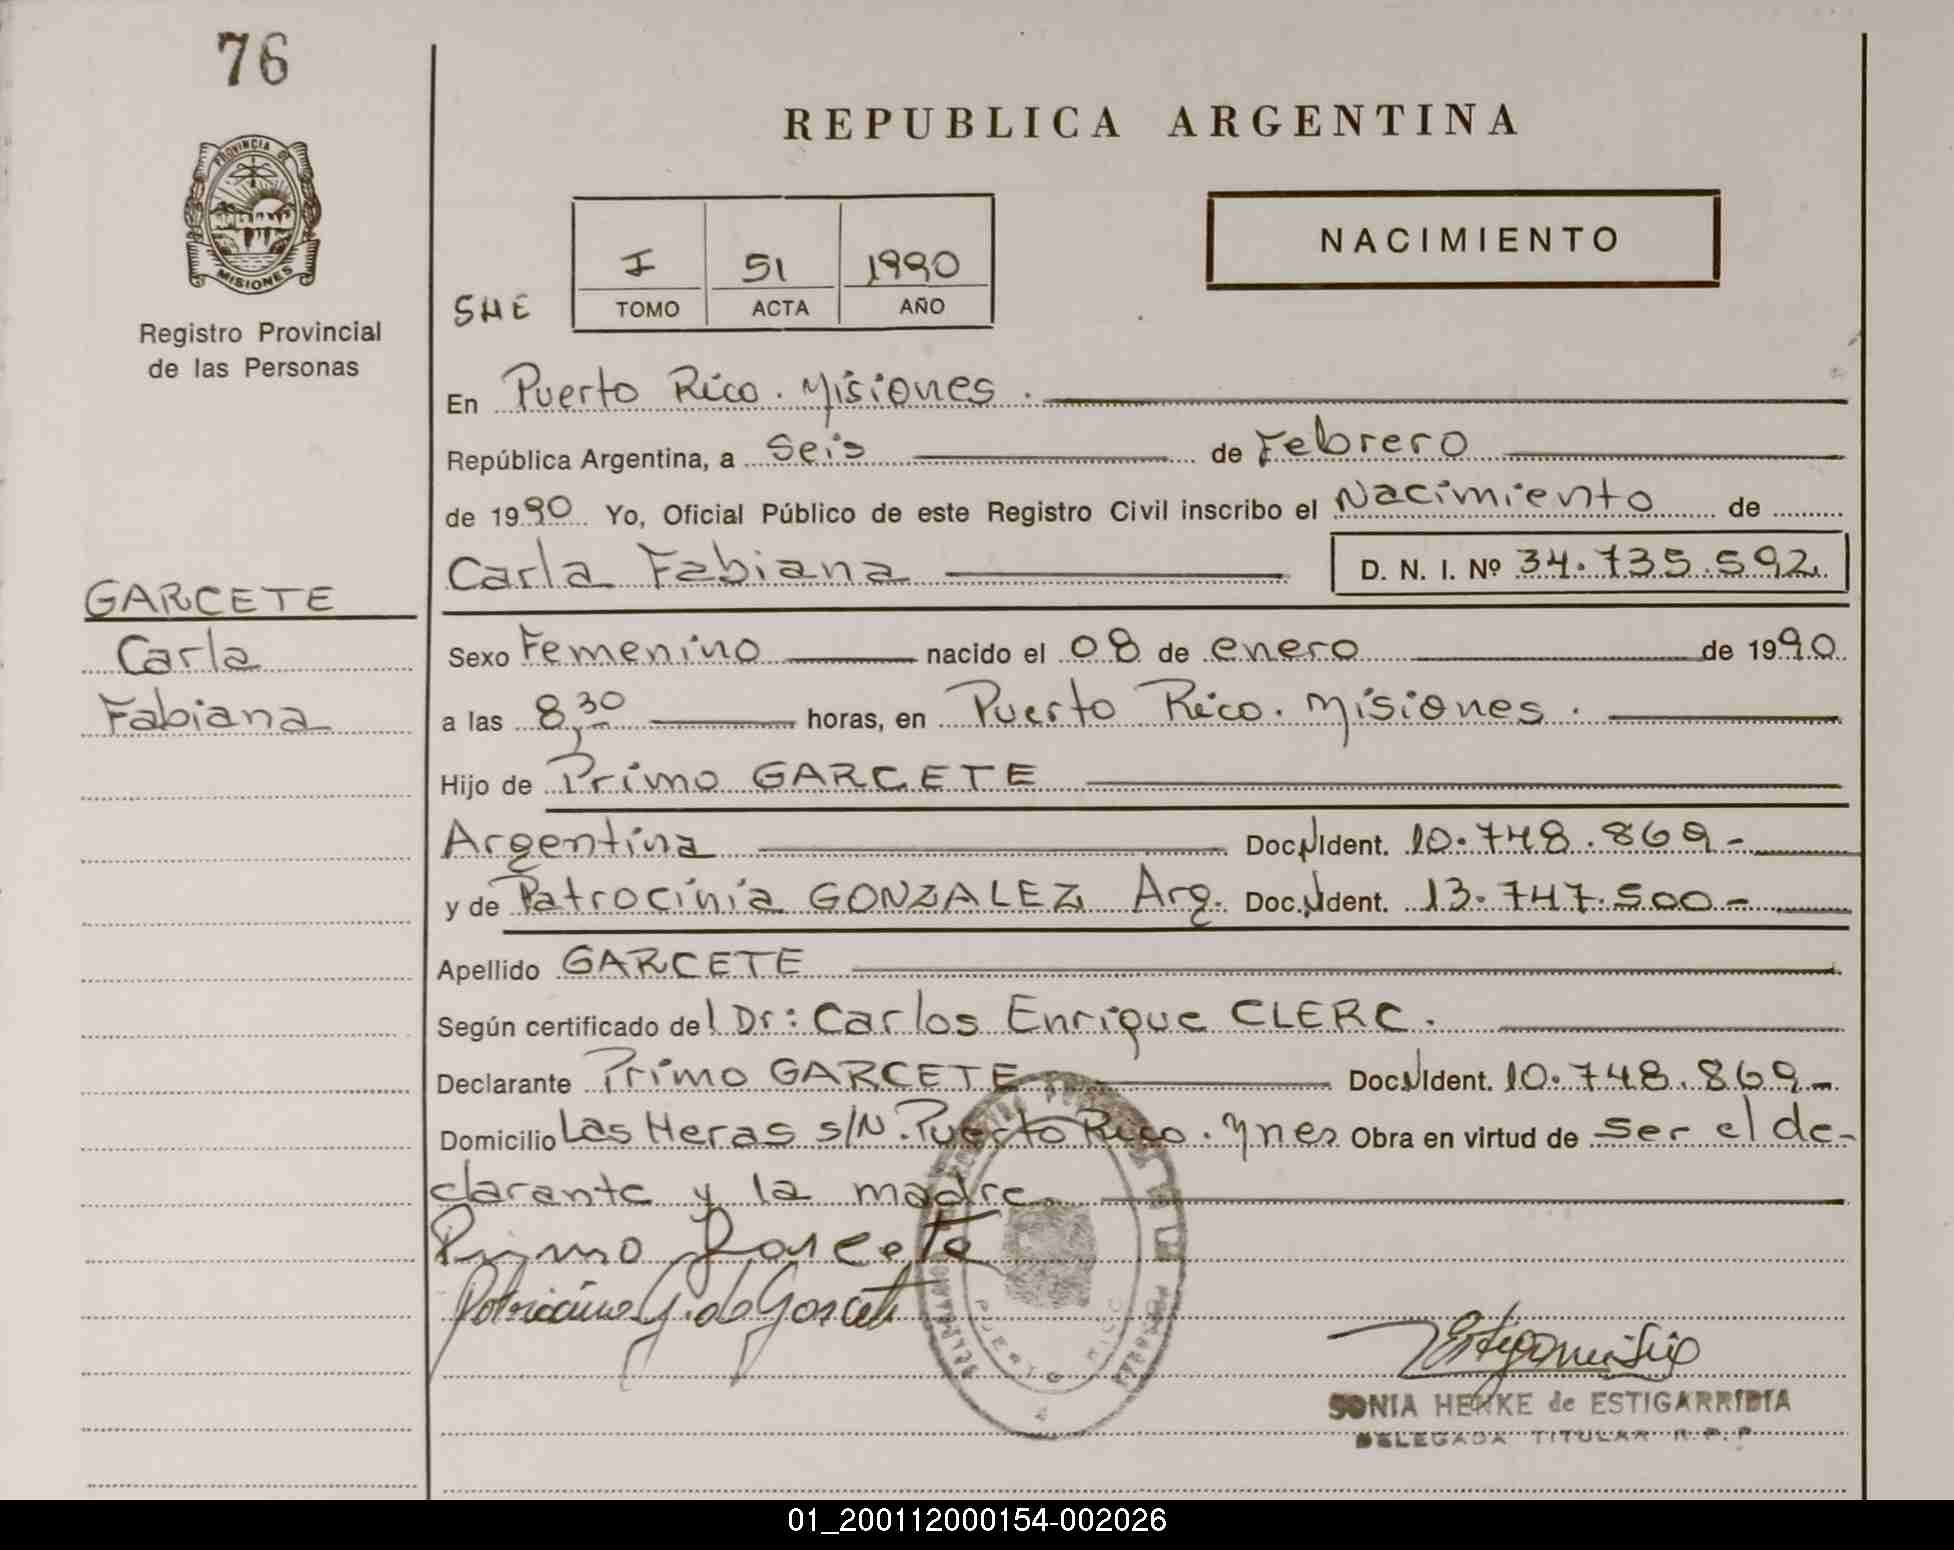 76
PROVINCIA DE
MISIONES
Registro Provincial
de las Personas
GARCETE
Carla
Fabiana
REPUBLICA ARGENTINA
I 51 1990
TOMO ACTA AÑO
SHE
NACIMIENTO
En Puerto Rico. Misiones.
República Argentina, a Seis de Febrero
de 1990 Yo, Oficial Público de este Registro Civil inscribo el Nacimiento de
Carla Fabiana D. N. I. Nº 34.735.592
Sexo Femenino nacido el 08 de enero de 1990
a las 8,30 horas, en Puerto Rico. Misiones.
Hijo de Primo GARCETE
Argentina Doc.N Ident. 10.748.869-
y de Patrocinia GONZALEZ Arg. Doc.N Ident. 13.747.500-
Apellido GARCETE
Según certificado del Dr: Carlos Enrique CLERC.
Declarante Primo GARCETE Doc.N Ident. 10.748.869-
Domicilio Las Heras s/N. Puerto Rico. Mnes Obra en virtud de ser el de-
clarante y la madre.
Primo Garcete
Patrocinia G. de Garcete
PUERTO RICO
SONIA HENKE de ESTIGARRIBIA
DELEGADA TITULAR R.P.P
01_200112000154-002026